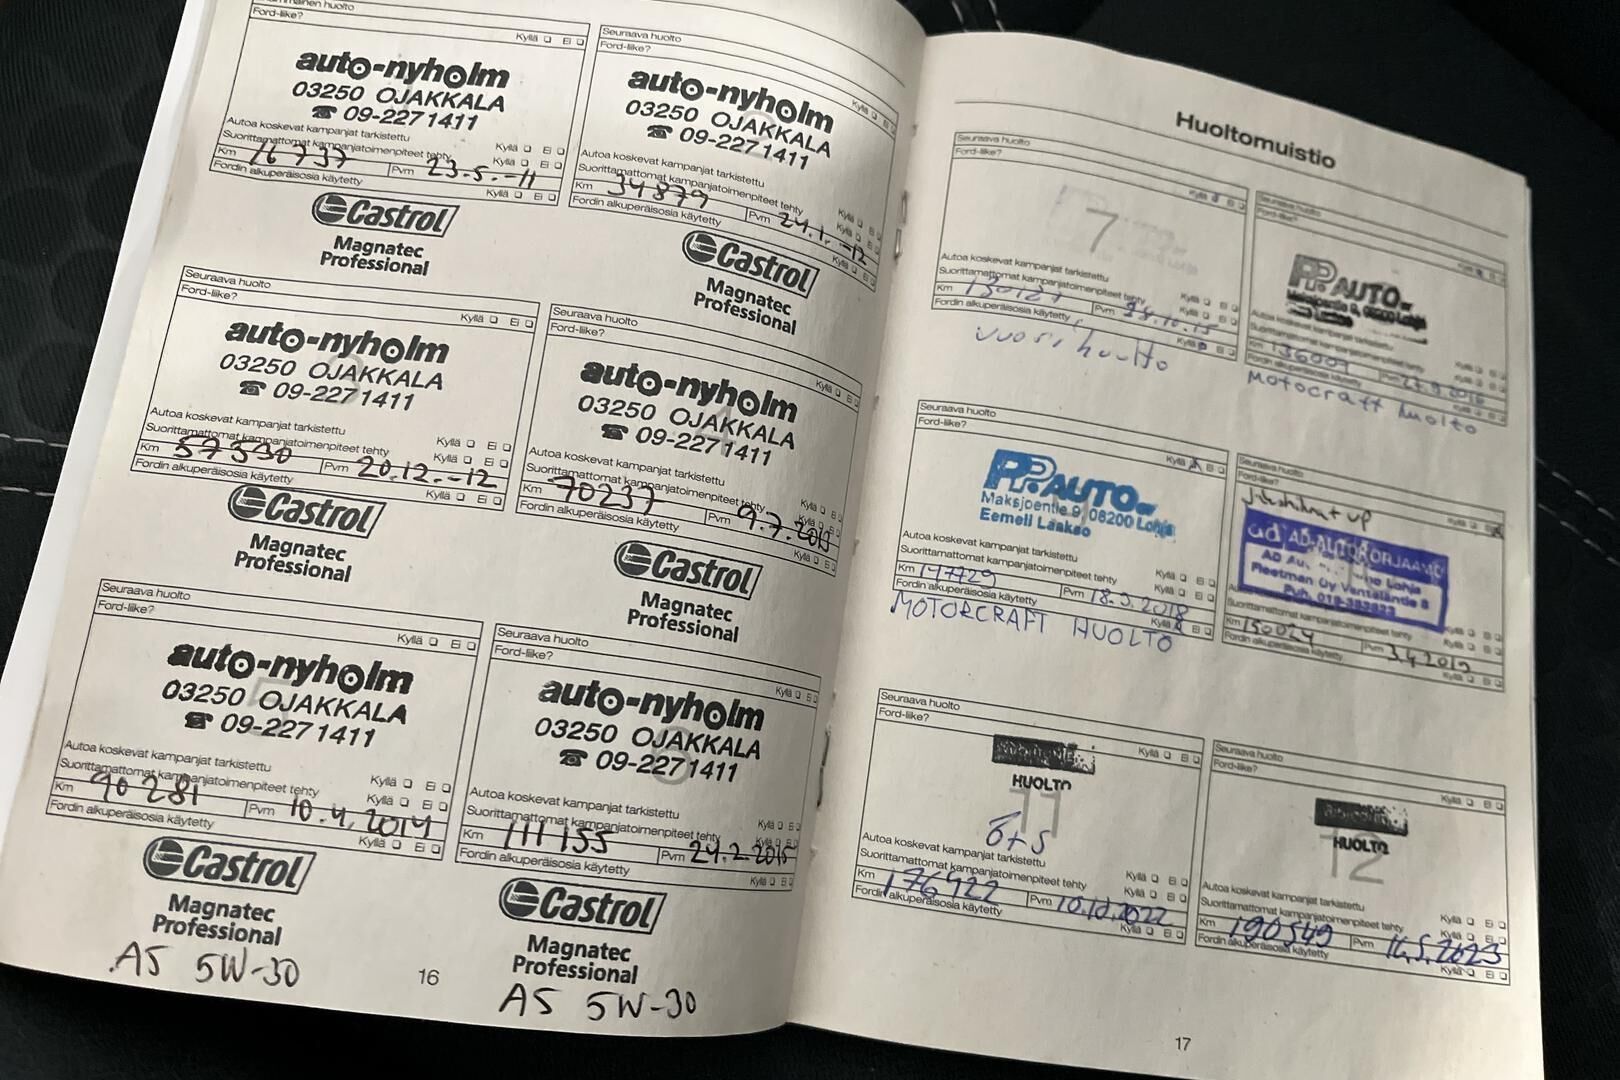 Ford-liike?
Kyllä Ei
auto-nyholm
03250 OJAKKALA
☎ 09-2271411
Autoa koskevat kampanjat tarkistettu
Kyllä Ei
Suorittamattomat kampanjatoimenpiteet tehty
Kyllä Ei
Km 16737 Pvm 23.5.-11
Fordin alkuperäisosia käytetty
Kyllä Ei
Castrol
Magnatec
Professional
Seuraava huolto
Ford-liike?
Kyllä Ei
auto-nyholm
03250 OJAKKALA
☎ 09-2271411
Autoa koskevat kampanjat tarkistettu
Kyllä Ei
Suorittamattomat kampanjatoimenpiteet tehty
Kyllä Ei
Km 34879 Pvm 24.1.-12
Fordin alkuperäisosia käytetty
Kyllä Ei
Castrol
Magnatec
Professional
Seuraava huolto
Ford-liike?
Kyllä Ei
auto-nyholm
03250 OJAKKALA
☎ 09-2271411
Autoa koskevat kampanjat tarkistettu
Kyllä Ei
Suorittamattomat kampanjatoimenpiteet tehty
Kyllä Ei
Km 57530 Pvm 20.12.-12
Fordin alkuperäisosia käytetty
Kyllä Ei
Castrol
Magnatec
Professional
Seuraava huolto
Ford-liike?
Kyllä Ei
auto-nyholm
03250 OJAKKALA
☎ 09-2271411
Autoa koskevat kampanjat tarkistettu
Kyllä Ei
Suorittamattomat kampanjatoimenpiteet tehty
Kyllä Ei
Km 70237 Pvm 9.7.2013
Fordin alkuperäisosia käytetty
Kyllä Ei
Castrol
Magnatec
Professional
Seuraava huolto
Ford-liike?
Kyllä Ei
auto-nyholm
03250 OJAKKALA
☎ 09-2271411
Autoa koskevat kampanjat tarkistettu
Kyllä Ei
Suorittamattomat kampanjatoimenpiteet tehty
Kyllä Ei
Km 90281 Pvm 10.4.2014
Fordin alkuperäisosia käytetty
Kyllä Ei
Castrol
Magnatec
Professional
A5 5W-30
Seuraava huolto
Ford-liike?
Kyllä Ei
auto-nyholm
03250 OJAKKALA
☎ 09-2271411
Autoa koskevat kampanjat tarkistettu
Kyllä Ei
Suorittamattomat kampanjatoimenpiteet tehty
Kyllä Ei
Km 111155 Pvm 24.2.2015
Fordin alkuperäisosia käytetty
Kyllä Ei
Castrol
Magnatec
Professional
A5 5W-30
16
Huoltomuistio
Seuraava huolto
Ford-liike?
7
Autoa koskevat kampanjat tarkistettu
Kyllä Ei
Suorittamattomat kampanjatoimenpiteet tehty
Kyllä Ei
Km Pvm 28.10.15
Fordin alkuperäisosia käytetty
Kyllä Ei
vuosihuolto
Seuraava huolto
Ford-liike?
PP.AUTO
Autoa koskevat kampanjat tarkistettu
Suorittamattomat kampanjatoimenpiteet tehty
Km 136009 Pvm
Fordin alkuperäisosia käytetty
Motocraft huolto
Seuraava huolto
Ford-liike?
Kyllä Ei
PP.AUTO
Maksjoentie 9, 08200 Lohja
Eemeli Laakso
Autoa koskevat kampanjat tarkistettu
Kyllä Ei
Suorittamattomat kampanjatoimenpiteet tehty
Kyllä Ei
Km 147729 Pvm 18.9.2018
Fordin alkuperäisosia käytetty
Kyllä Ei
MOTORCRAFT HUOLTO
Seuraava huolto
Ford-liike?
Kyllä Ei
ad AD-AUTOKORJAAMO
Lohja
Fleetman Oy
Suorittamattomat kampanjatoimenpiteet tehty
Km 150024 Pvm 3.4.2019
Fordin alkuperäisosia käytetty
Seuraava huolto
Ford-liike?
Kyllä Ei
HUOLTO
11
Ö+S
Autoa koskevat kampanjat tarkistettu
Kyllä Ei
Suorittamattomat kampanjatoimenpiteet tehty
Kyllä Ei
Km 176922 Pvm 10.10.2022
Fordin alkuperäisosia käytetty
Kyllä Ei
Seuraava huolto
Ford-liike?
Kyllä Ei
HUOLTO
12
Autoa koskevat kampanjat tarkistettu
Kyllä Ei
Suorittamattomat kampanjatoimenpiteet tehty
Kyllä Ei
Km 190549 Pvm 16.5.2023
Fordin alkuperäisosia käytetty
Kyllä Ei
17